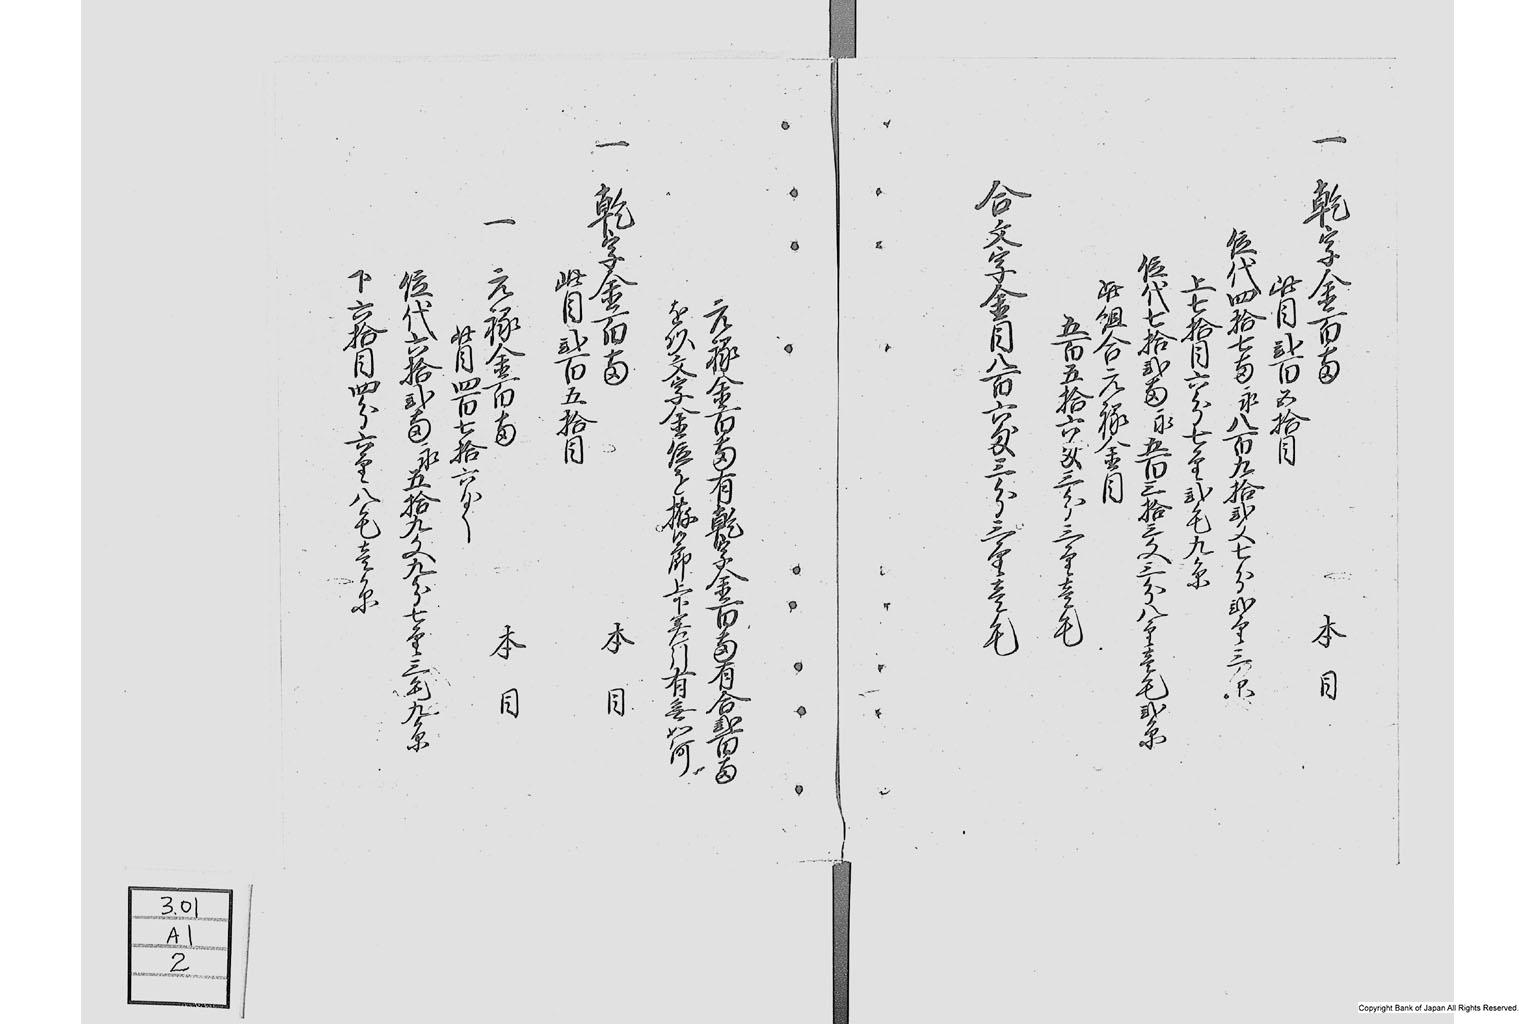 一 乾字金百両 本目
此目弐百五拾目
位代四拾七両永八百九拾弐文七分弐厘三糸
上七拾目六分七厘弐毛九糸
位代七拾弐両永五百三拾三文三分八厘壱毛弐糸
此組合元禄金目
五百五拾六匁三分三厘壱毛
合文字金目八百六匁三分三厘壱毛
元禄金百両有乾字金百両有合弐百両
を以文字金位を拵候節上下差引有無如何
一 乾字金百両 本目
此目弐百五拾目
一 元禄金百両 本目
此目四百七拾六匁
位代六拾弐両永五拾九文九分七厘三毛九糸
下六拾目四分六厘八毛壱糸
3.01
A1
2
Copyright Bank of Japan All Rights Reserved.